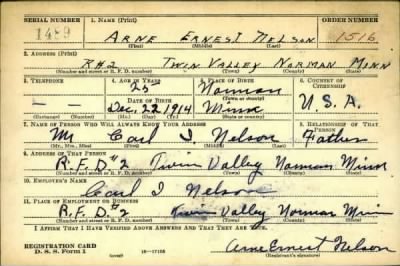 SERIAL NUMBER 1. NAME (Print) ORDER NUMBER
1489 ARNE ERNEST NELSON 1516
(First) (Middle) (Last)
2. ADDRESS (Print)
R#2 TWIN VALLEY NORMAN MINN
(Number and street or R. F. D. number) (Town) (County) (State)
3. TELEPHONE 4. AGE IN YEARS 5. PLACE OF BIRTH 6. COUNTRY OF CITIZENSHIP
25 Norman
(Town or county)
DATE OF BIRTH
— — Dec. 22, 1914 Minn. U.S.A.
(Exchange) (Number) (Mo.) (Day) (Yr.) (State or country)
7. NAME OF PERSON WHO WILL ALWAYS KNOW YOUR ADDRESS 8. RELATIONSHIP OF THAT PERSON
Mr Carl I. Nelson Father
(Mr., Mrs., Miss) (First) (Middle) (Last)
9. ADDRESS OF THAT PERSON
R.F.D.#2 Twin Valley Norman Minn
(Number and street or R. F. D. number) (Town) (County) (State)
10. EMPLOYER'S NAME
Carl I. Nelson
11. PLACE OF EMPLOYMENT OR BUSINESS
R.F.D.#2 Twin Valley Norman Minn
(Number and street or R. F. D. number) (Town) (County) (State)
I AFFIRM THAT I HAVE VERIFIED ABOVE ANSWERS AND THAT THEY ARE TRUE.
REGISTRATION CARD
D. S. S. Form 1 (over) Arne Ernest Nelson
(Registrant's signature)